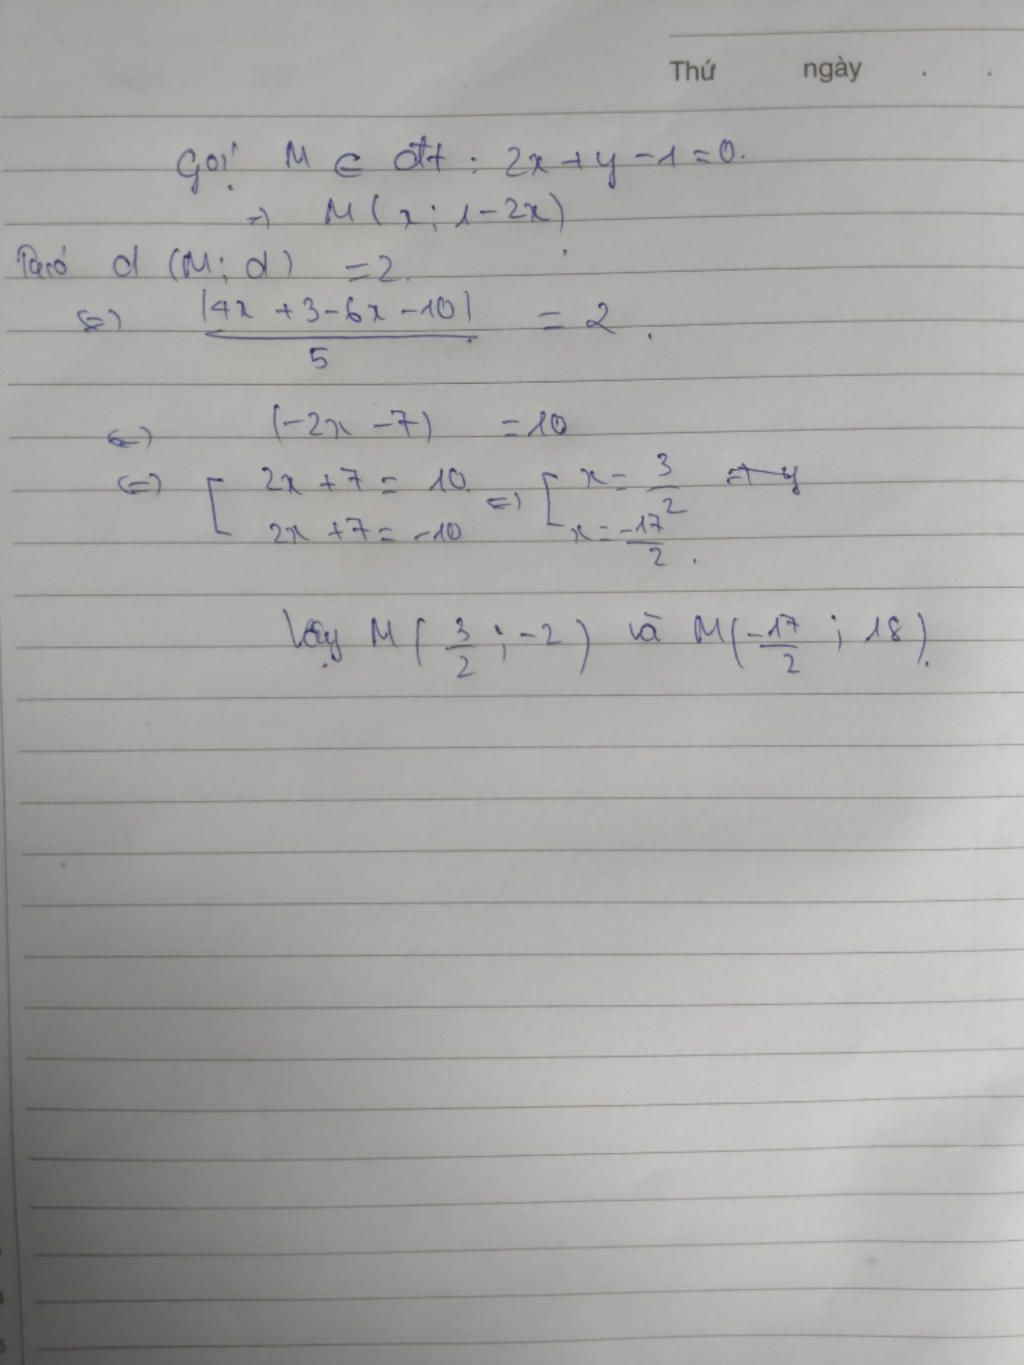 Thứ ngày . .
Gọi M ∈ đt : 2x + y - 1 = 0.
=> M ( x ; 1 - 2x )
Ta có d (M; d) = 2.
<=> |4x + 3 - 6x - 10| / 5 = 2.
<=> |-2x - 7| = 10
<=> [ 2x + 7 = 10 <=> [ x = 3/2
2x + 7 = -10 x = -17/2.
Vậy M ( 3/2 ; -2 ) và M ( -17/2 ; 18 ).